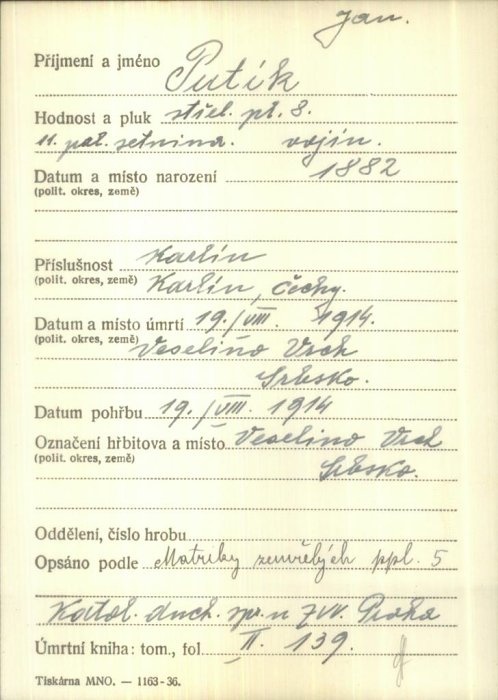 Jan.
Příjmení a jméno Putík
Hodnost a pluk střel. pl. 8.
11. pol. setnina. vojín.
Datum a místo narození 1882
(polit. okres, země)
Příslušnost Karlín
(polit. okres, země) Karlín, Čechy.
Datum a místo úmrtí 19./VIII. 1914.
(polit. okres, země) Veselino Vrch
Srbsko.
Datum pohřbu 19./VIII. 1914
Označení hřbitova a místo Veselino Vrch
(polit. okres, země) Srbsko.
Oddělení, číslo hrobu
Opsáno podle Matriky zemřelých ppl. 5
Katol. duch. spr. u ZVV. Praha
Úmrtní kniha: tom., fol. II. 139.
Tiskárna MNO. — 1163-36.